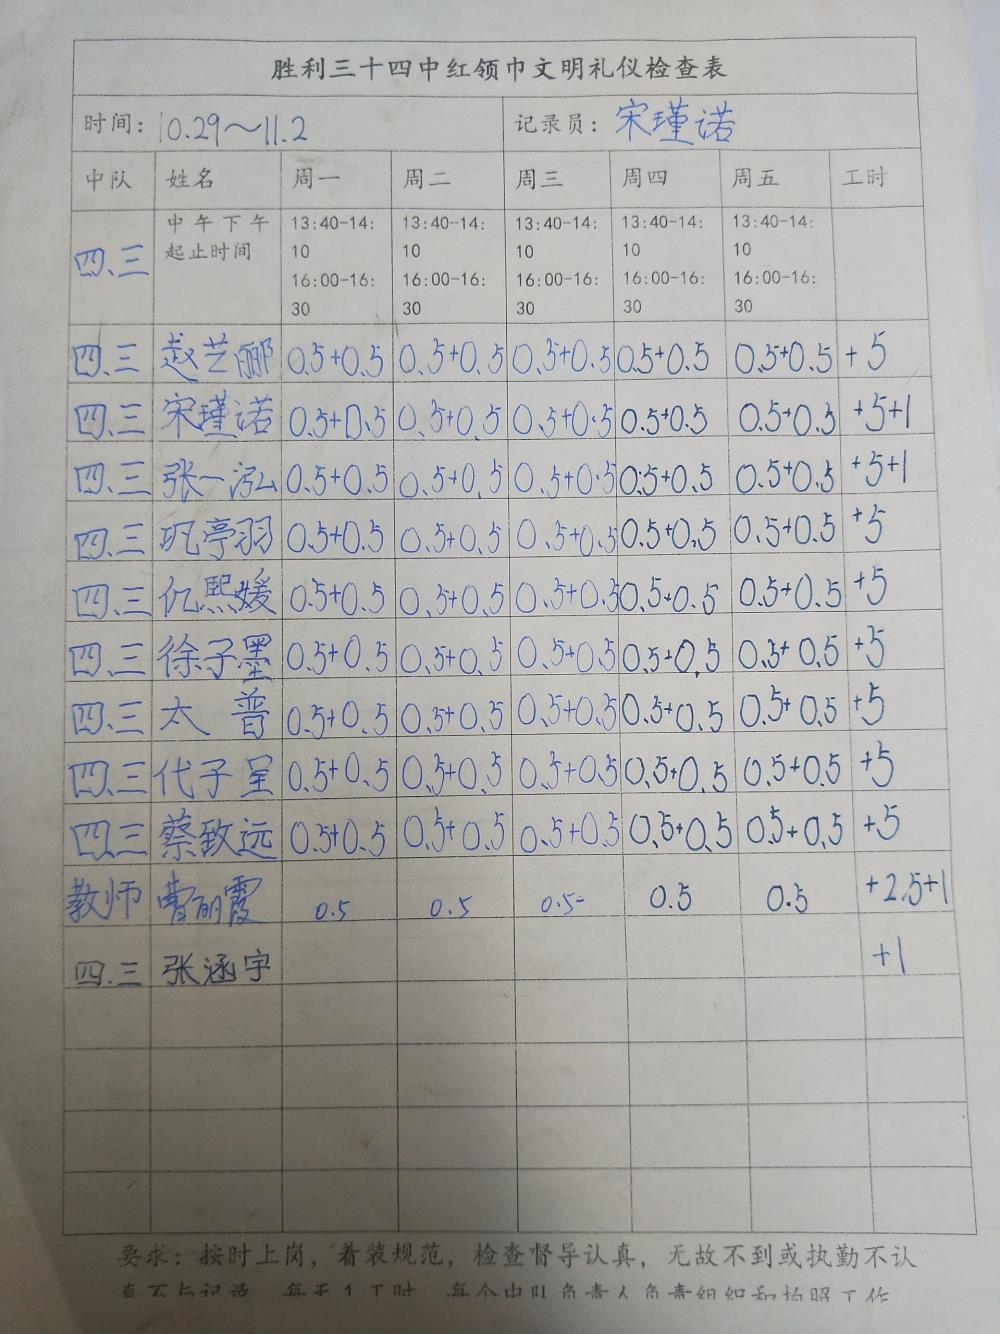 胜利三十四中红领巾文明礼仪检查表
时间：10.29～11.2 记录员：宋瑾诺
中队 姓名 周一 周二 周三 周四 周五 工时
四.三 中午下午起止时间 13:40-14:10 16:00-16:30 13:40-14:10 16:00-16:30 13:40-14:10 16:00-16:30 13:40-14:10 16:00-16:30 13:40-14:10 16:00-16:30
四.三 赵艺郦 0.5+0.5 0.5+0.5 0.5+0.5 0.5+0.5 0.5+0.5 +5
四.三 宋瑾诺 0.5+0.5 0.5+0.5 0.5+0.5 0.5+0.5 0.5+0.5 +5+1
四.三 张一泓 0.5+0.5 0.5+0.5 0.5+0.5 0.5+0.5 0.5+0.5 +5+1
四.三 巩亭羽 0.5+0.5 0.5+0.5 0.5+0.5 0.5+0.5 0.5+0.5 +5
四.三 仇熙媛 0.5+0.5 0.5+0.5 0.5+0.5 0.5+0.5 0.5+0.5 +5
四.三 徐子墨 0.5+0.5 0.5+0.5 0.5+0.5 0.5+0.5 0.5+0.5 +5
四.三 太普 0.5+0.5 0.5+0.5 0.5+0.5 0.5+0.5 0.5+0.5 +5
四.三 代子呈 0.5+0.5 0.5+0.5 0.5+0.5 0.5+0.5 0.5+0.5 +5
四.三 蔡致远 0.5+0.5 0.5+0.5 0.5+0.5 0.5+0.5 0.5+0.5 +5
教师 曹丽霞 0.5 0.5 0.5 0.5 0.5 +2.5+1
四.三 张涵宇 +1
要求：按时上岗，着装规范，检查督导认真，无故不到或执勤不认
真不与记录，每天1工时，每个中队负责人负责组织和拍照工作